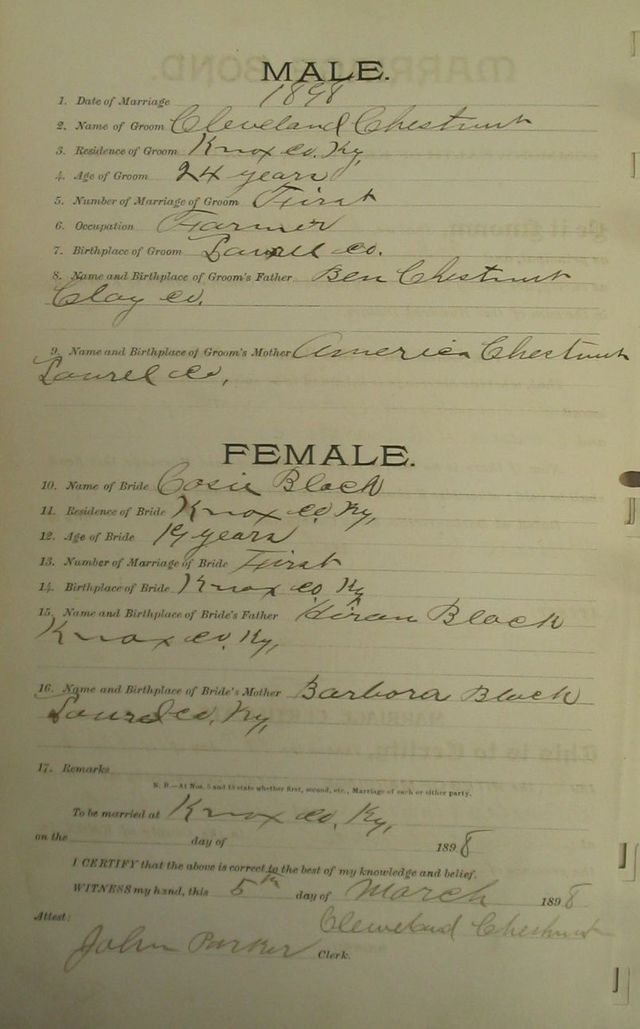 MALE.
1. Date of Marriage 1898
2. Name of Groom Cleveland Chestnut
3. Residence of Groom Knox Co. Ky,
4. Age of Groom 24 years
5. Number of Marriage of Groom First
6. Occupation Farmer
7. Birthplace of Groom Laurel Co.
8. Name and Birthplace of Groom's Father Ben Chestnut
Clay Co.
9. Name and Birthplace of Groom's Mother America Chestnut
Laurel Co,
FEMALE.
10. Name of Bride Cosie Black
11. Residence of Bride Knox Co. Ky,
12. Age of Bride 19 years
13. Number of Marriage of Bride First
14. Birthplace of Bride Knox Co Ky
15. Name and Birthplace of Bride's Father Hiram Black
Knox Co. Ky,
16. Name and Birthplace of Bride's Mother Barbora Black
Laurel Co, Ky,
17. Remarks
N. B.—At Nos. 5 and 13 state whether first, second, etc., Marriage of each or either party.
To be married at Knox Co, Ky,
on the day of 1898
I CERTIFY that the above is correct to the best of my knowledge and belief.
WITNESS my hand, this 5th day of March 1898
Attest: Cleveland Chestnut
John Parker Clerk.